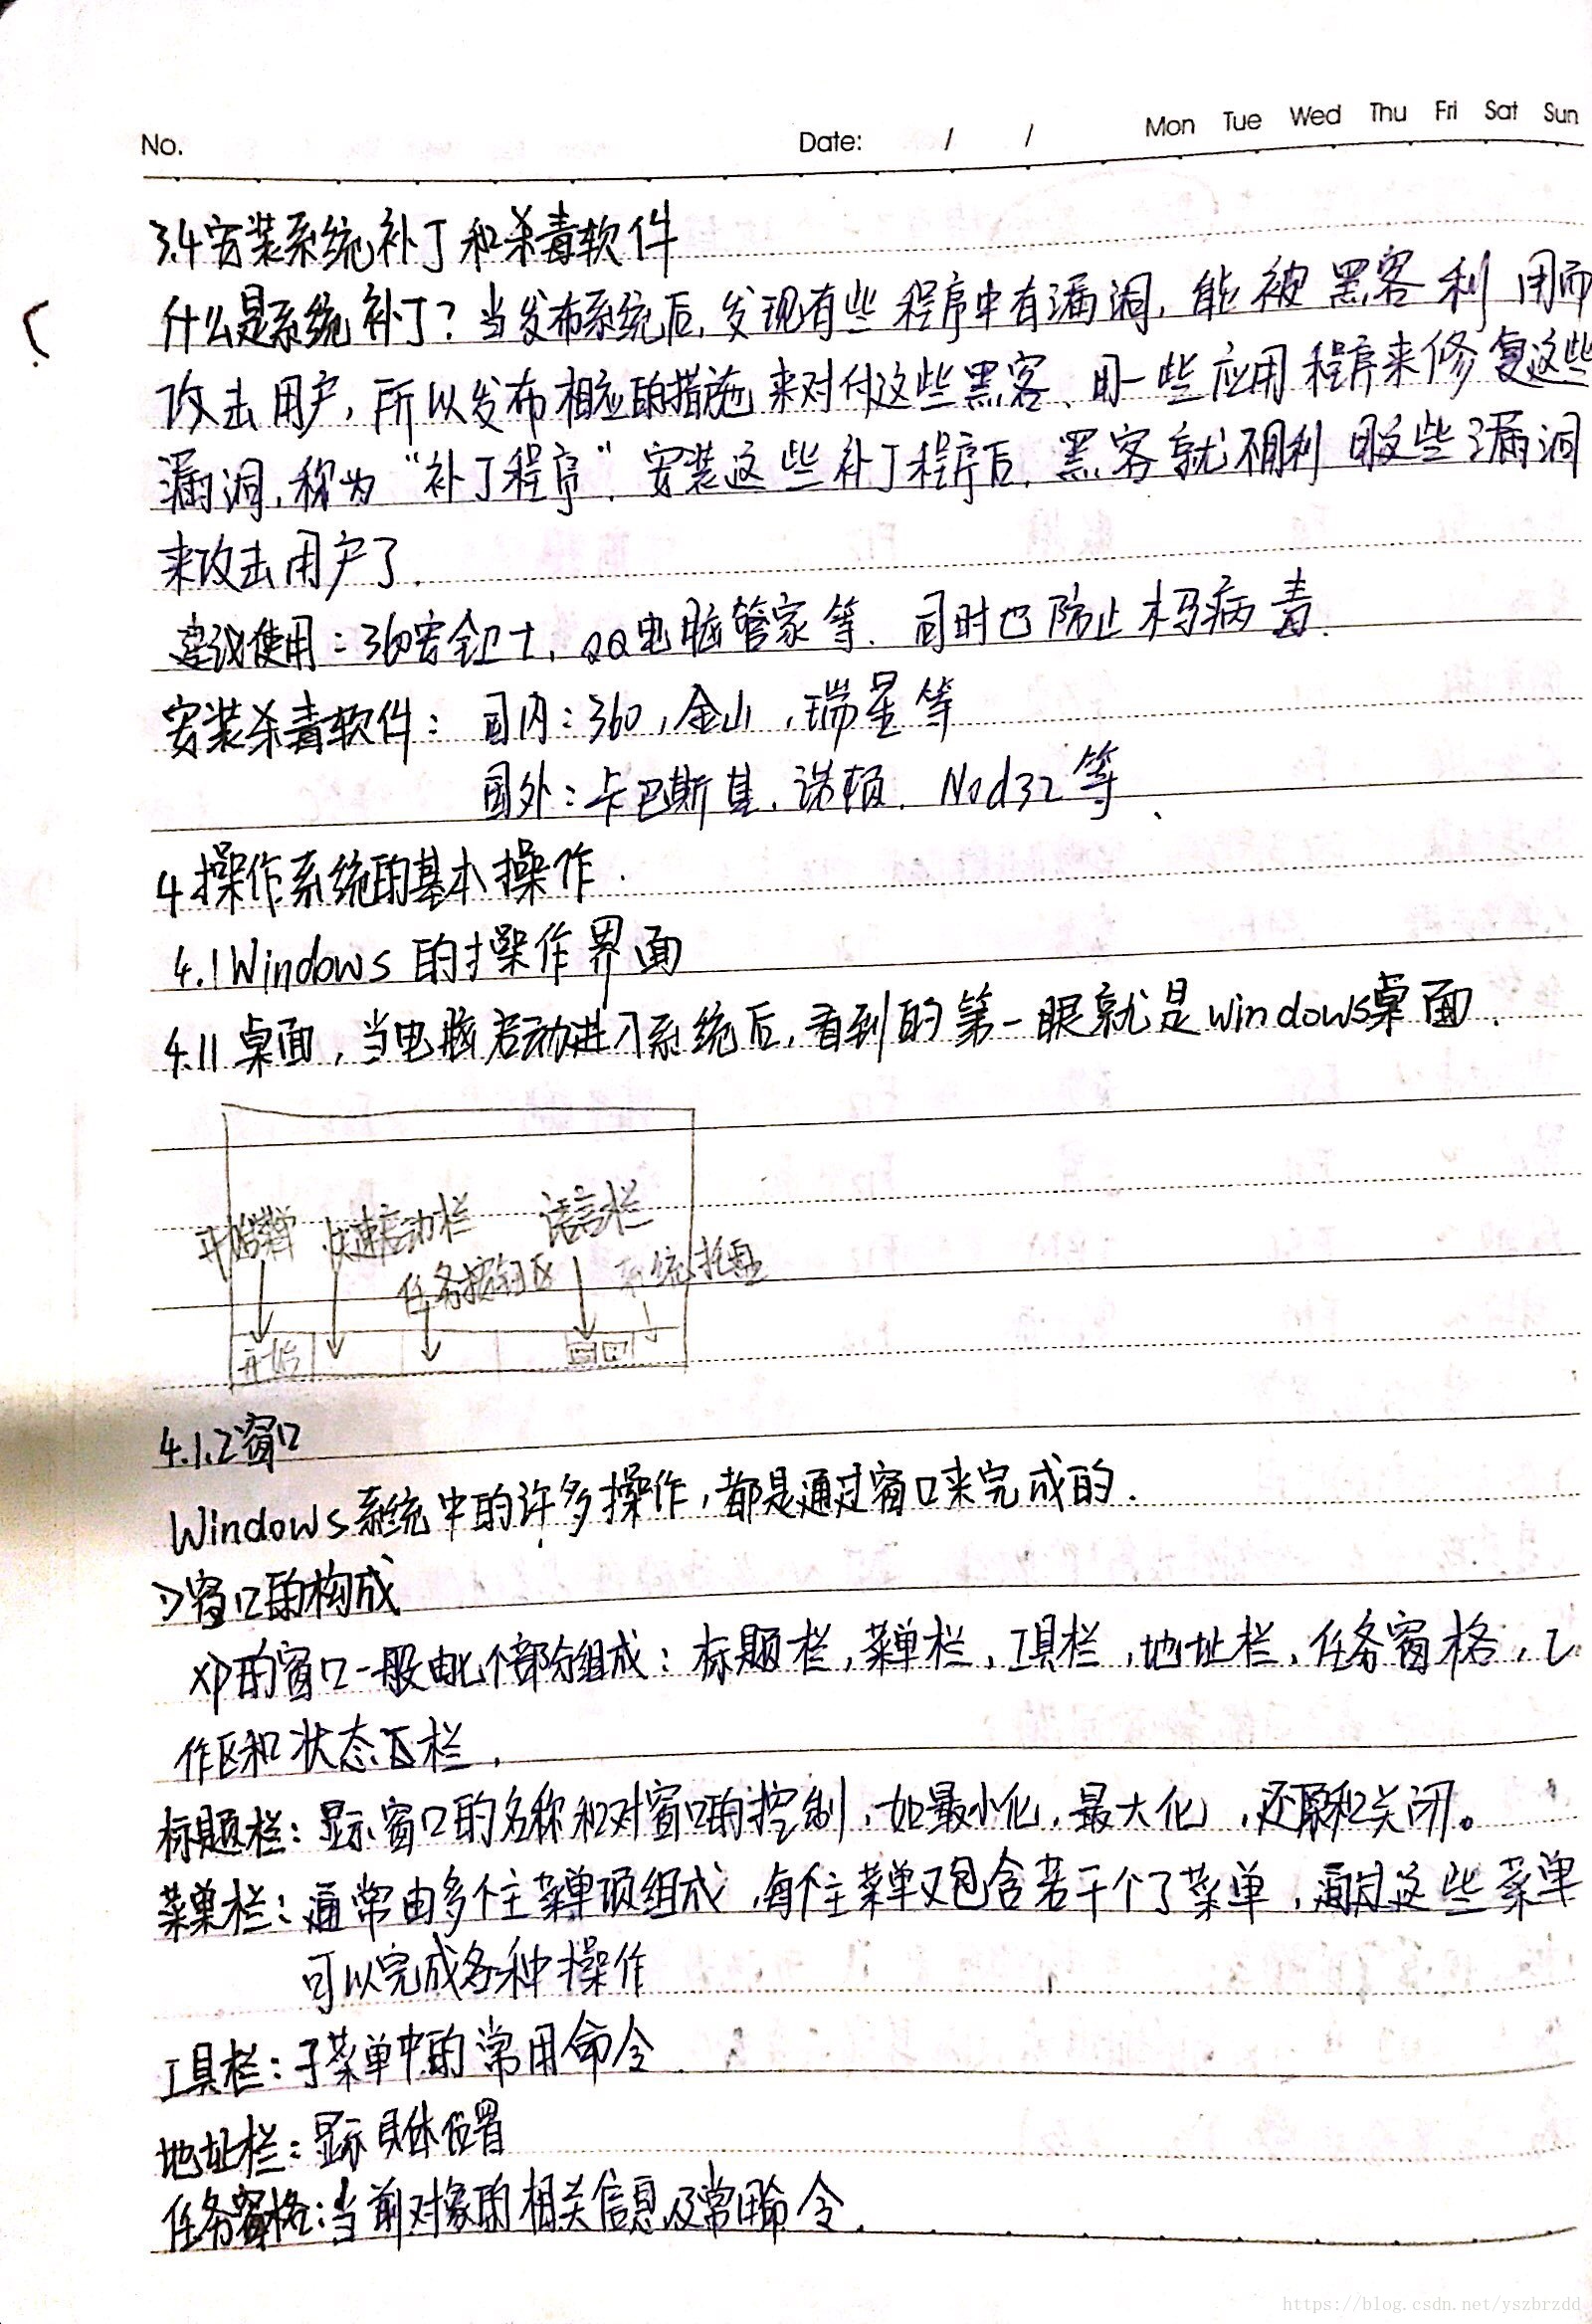 No. Date: / / Mon Tue Wed Thu Fri Sat Sun
3.4安装系统补丁和杀毒软件
什么是系统补丁?当发布系统后,发现有些程序中有漏洞,能被黑客利用而
攻击用户,所以发布相应的措施来对付这些黑客、用一些应用程序来修复这些
漏洞,称为“补丁程序”.安装这些补丁程序后,黑客就不用利用这些漏洞
来攻击用户了.
建议使用:360安全卫士,QQ电脑管家等.同时也防止木马病毒.
安装杀毒软件: 国内:360,金山,瑞星等
国外:卡巴斯基,诺顿.Nod32等、
4操作系统的基本操作.
4.1Windows的操作界面
4.11桌面,当电脑启动进入系统后,看到的第一眼就是windows桌面.
开始菜单 快速启动栏 语言栏
任务按钮区 系统托盘
开始
4.1.2窗口
Windows系统中的许多操作,都是通过窗口来完成的.
1>窗口的构成
xp的窗口一般由七个部分组成:标题栏,菜单栏,工具栏,地址栏,任务窗格,工
作区和状态栏.
标题栏:显示窗口的名称和对窗口的控制,如最小化,最大化,还原和关闭。
菜单栏:通常由多个主菜单项组成,每个主菜单又包含若干个子菜单,通过这些菜单
可以完成各种操作
工具栏:子菜单中的常用命令
地址栏:显示具体位置
任务窗格:当前对象的相关信息及常用命令.
https://blog.csdn.net/yszbrzdd